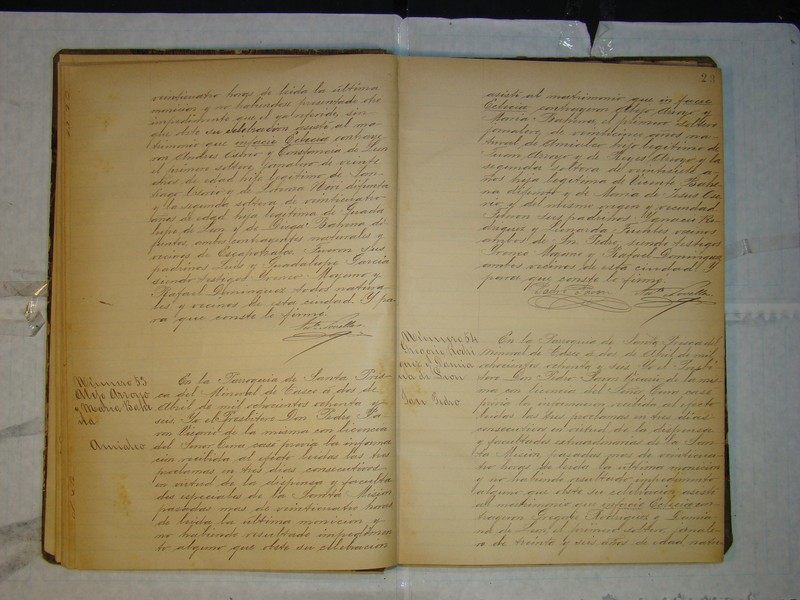 veinticuatro horas de leida la última
monicion y no habiendose presentado otro
impedimento que el
que obste su celebracion asisti al ma-
trimonio que in facie Eclecia contraje-
ron Andres Osorio y Constancia de Leon
el primero soltero jornalero de veinte
años de edad hijo legitimo de San-
tiago Osorio y de difunta
y la segunda soltera de veinticuatro
años de edad hija legitima de Guada-
lupe de Leon y de Diega Bahena di-
funtos, ambos contrayentes naturales y
vecinos de Fueron sus
padrinos Luis y Guadalupe Garcia
siendo testigos Moyano y
Rafael Dominguez todos natura-
les y vecinos de esta ciudad. Y pa-
ra que conste lo firmé.
Número 53
Alejo Arroyo
y Maria Bahe
na
Amialco
En la Parroquia de Santa Pris-
ca del Mineral de Tasco á dos de
Abril de mil ochocientos ochenta y
seis Yo el Presbitero Don Pedro Pa-
ron Vicario de la misma con licencia
del Señor Cura casé previa la informa-
cion recibida al efecto leidas las tres
proclamas en tres dias consecutivos
en virtud de la dispensa y faculta
des especiales de la Santa Mision
pasadas mas de veinticuatro horas
de leida la última monicion y
no habiendo resultado impedimen-
to alguno que obste su celebracion
23
asisti al matrimonio que in facie
Eclecia contrajeron Alejo Arroyo y
Maria Bahena, el primero soltero
jornalero de años na-
tural de Amialco hijo legitimo de
Juan Arroyo y de Reyes Arroyo y la
segunda soltera de veintiseis a-
ños hija legitima de Vicente Bahe-
na difunto y de Maria de Jesus
y del mismo origen y vecindad
Fueron sus padrinos Ignacio Ro-
driguez y Bernarda Fuentes vecinos
ambos de Sn. Pedro, siendo testigos
Moyano y Rafael Dominguez
ambos vecinos de esta ciudad. Y
para que conste lo firmé.
Pedro Paron
Número 54
Gregorio Rodri
guez y Damia
na de Leon
San Pedro
En la Parroquia de Santa Prisca del
Mineral de Tasco á dos de Abril de mil
ochocientos ochenta y seis Yo el Presbi-
tero Don Pedro Paron Vicario de la mis-
ma con licencia del Señor Cura casé
previa la informacion recibida al efecto
leidas las tres proclamas en tres dias
consecutivos en virtud de la dispensa
y facultades extraordinarias de la San-
ta Mision pasadas mas de veinticua-
tro horas de leida la última monicion
y no habiendo resultado impedimento
alguno que obste su celebracion asisti
al matrimonio que infacie Eclecia con-
trajeron Gregorio Rodriguez y Damia-
na de Leon, el primero soltero, jornale-
ro de treinta y seis años de edad natu-